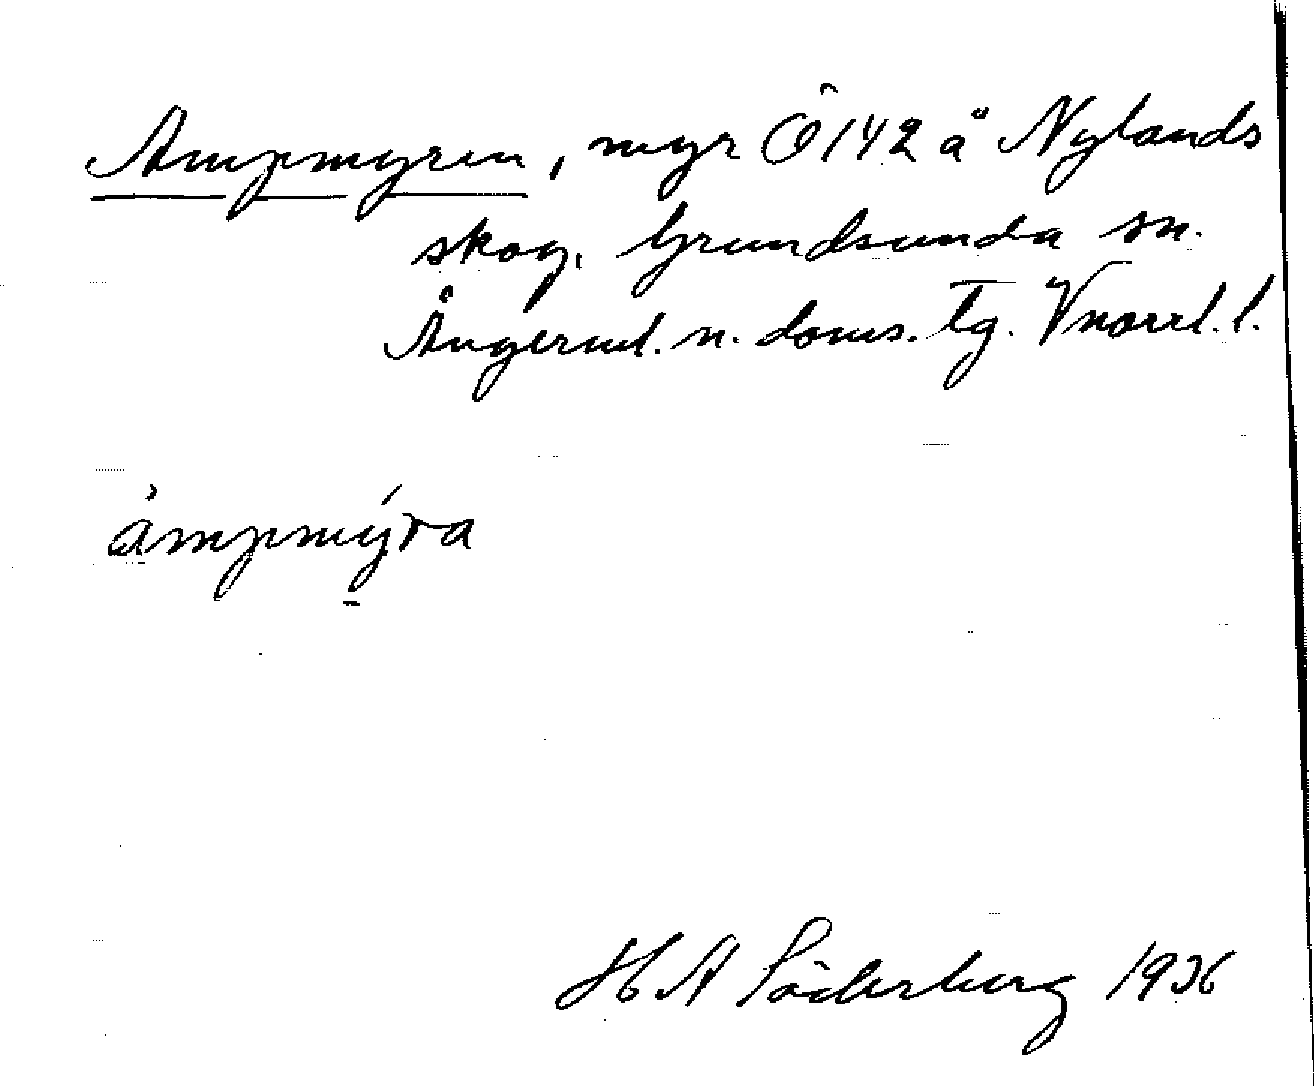 Ampmyren, myr Ö142 å Nylands
skog. Grundsunda sn.
Ångerml. n. doms. tg. Vnorrl. l.
ámpmýra
H A Söderberg 1936